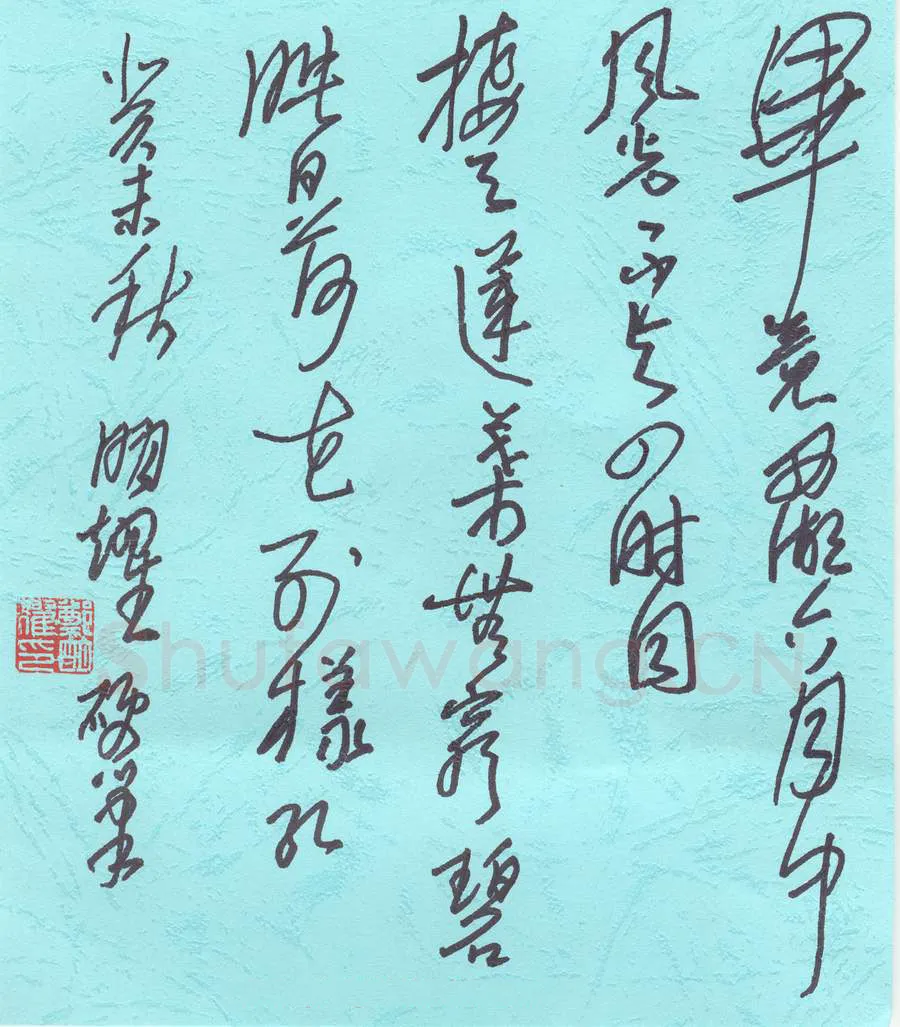 畢竟西湖六月中
风光不与四时同
接天蓮葉無窮碧
映日荷花别樣红
癸未秋 明耀 硬筆
Shufawang.CN